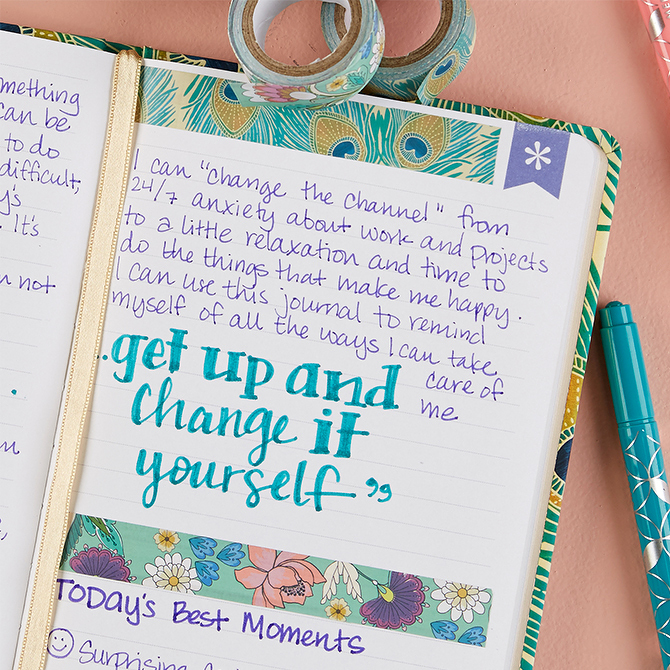 mething
can be
to do
difficult,
y's
. It's
m not
I can "change the channel" from
24/7 anxiety about work and projects
to a little relaxation and time to
do the things that make me happy.
I can use this journal to remind
myself of all the ways I can take
care of
me
..get up and
change it
yourself"
Today's Best Moments
Surprising